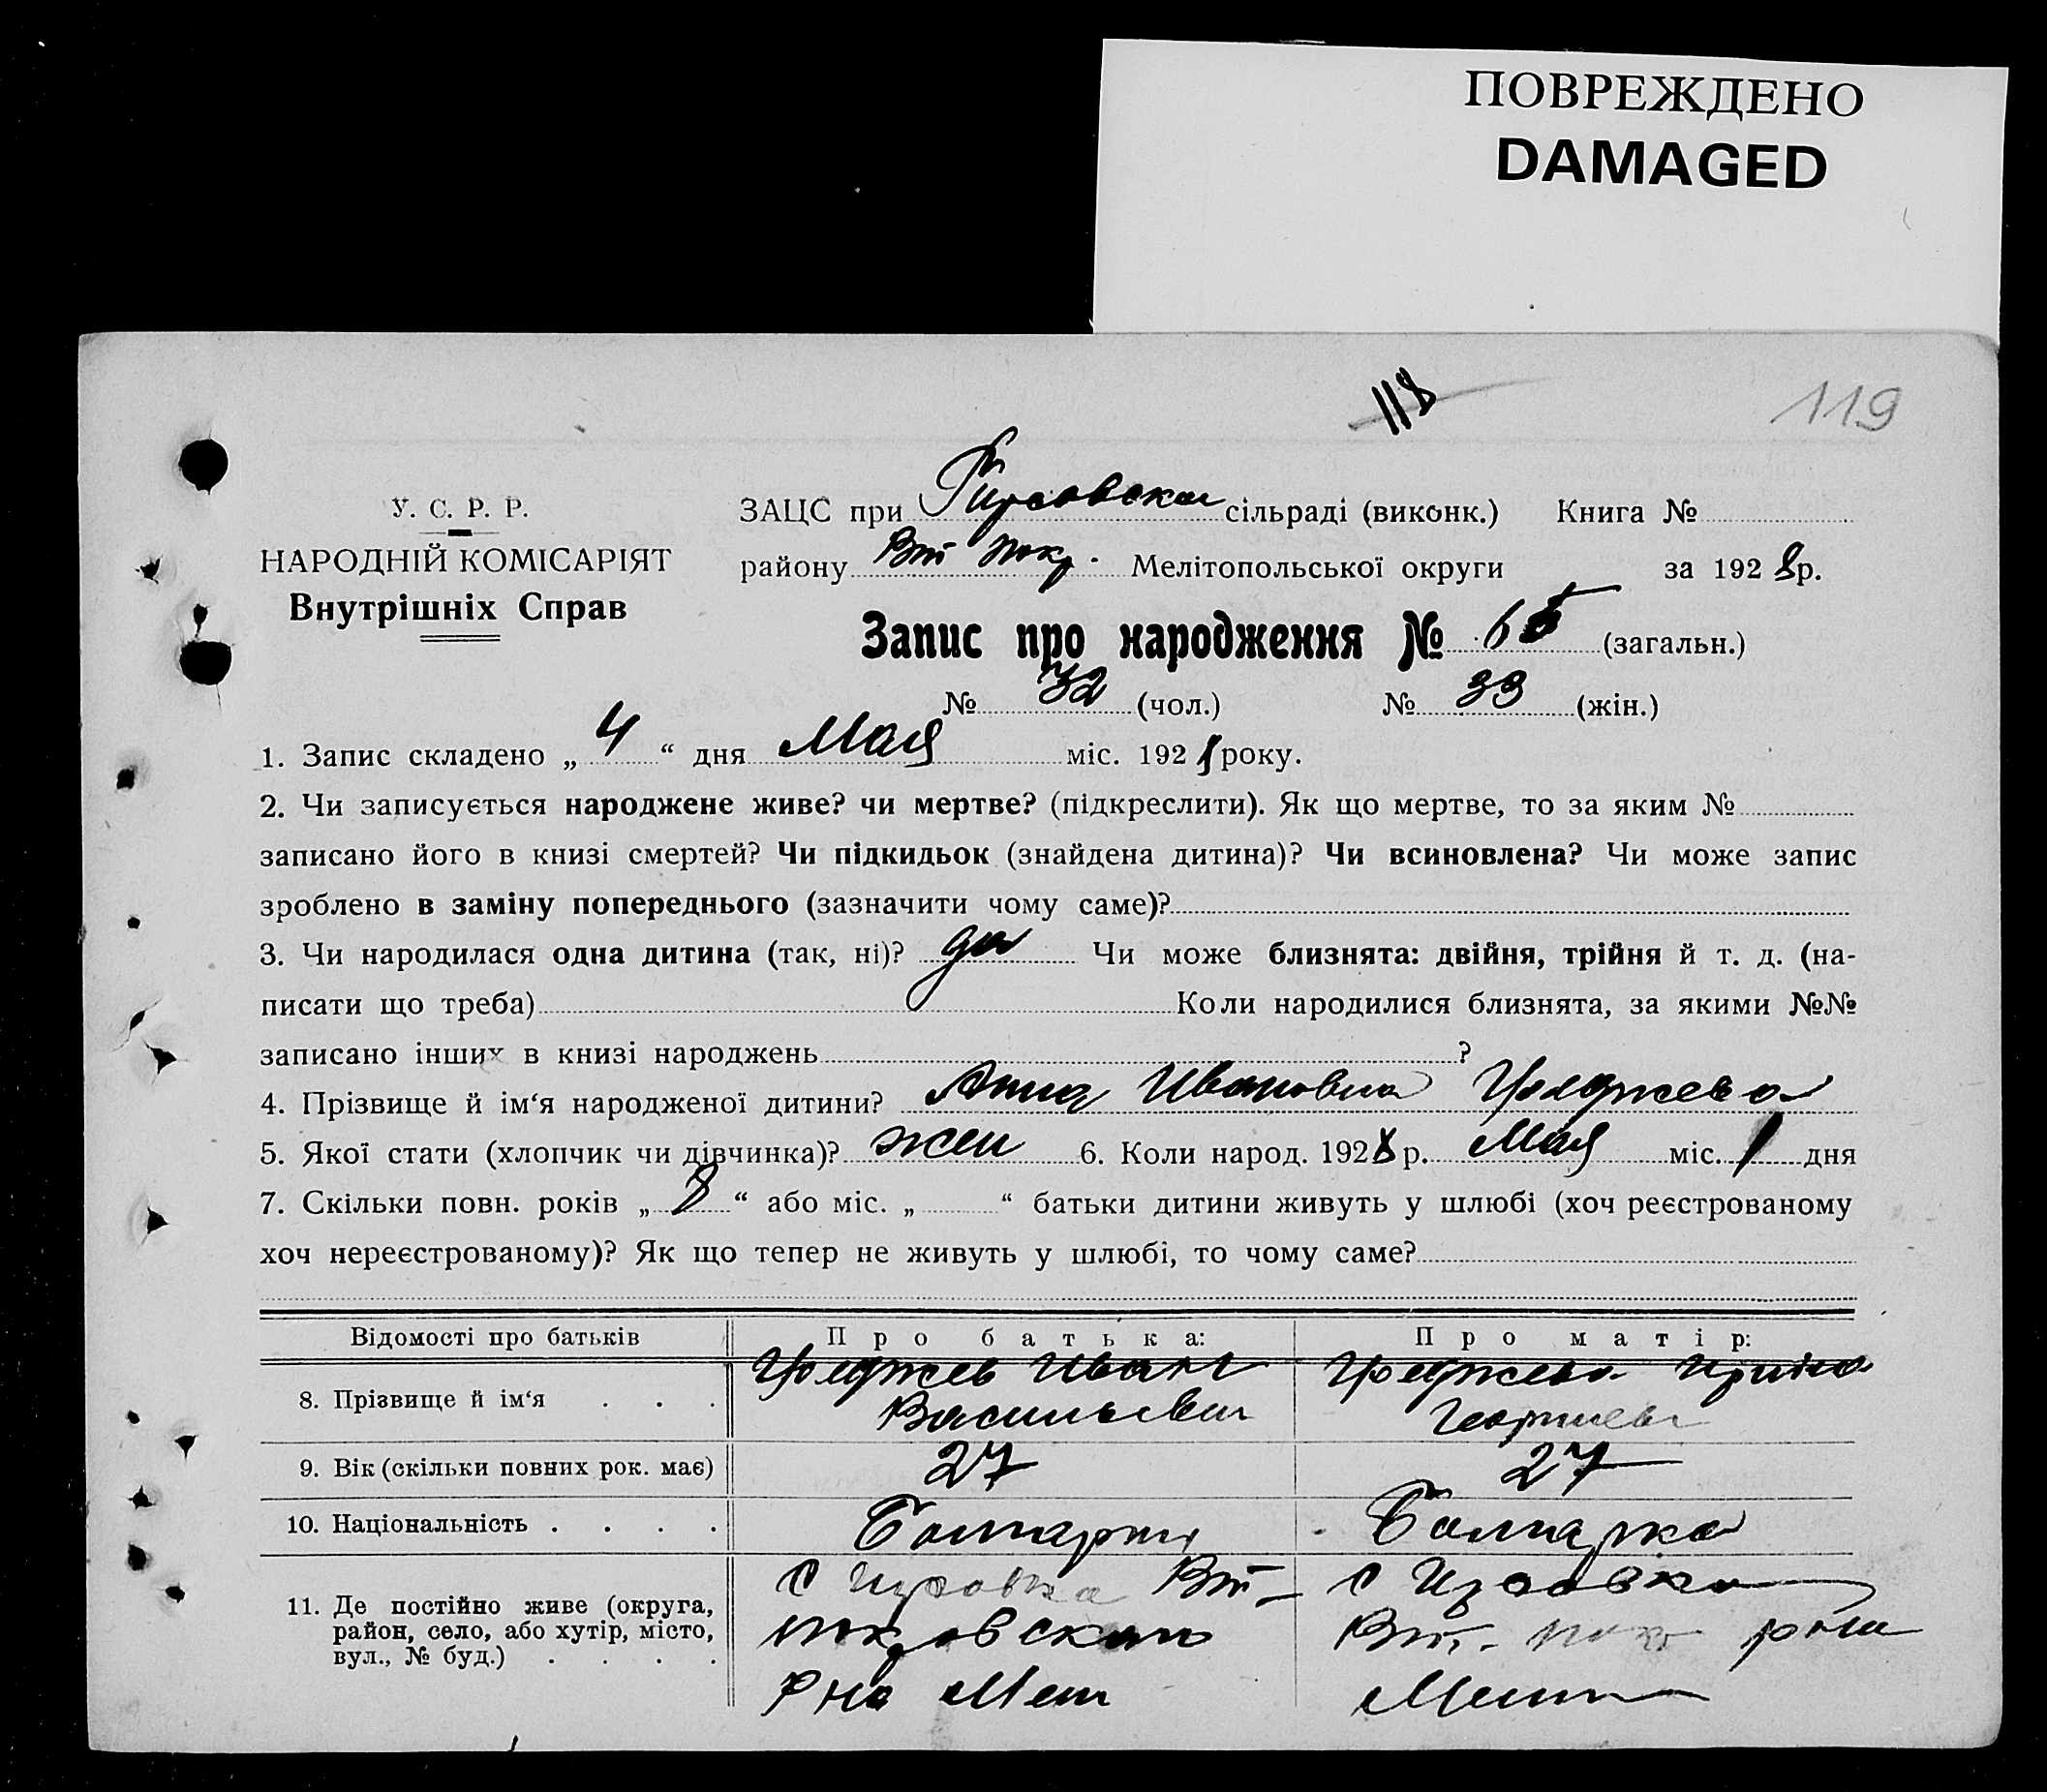 ПОВРЕЖДЕНО
DAMAGED
118
119
У. С. Р. Р.
НАРОДНІЙ КОМІСАРІЯТ
Внутрішніх Справ
ЗАЦС при Гирсовска сільраді (виконк.) Книга №
району Вт Покр. Мелітопольської округи за 1928 р.
Запис про народження № 65 (загальн.)
№ 32 (чол.) № 33 (жін.)
1. Запис складено „ 4 “ дня Мая міс. 1928 року.
2. Чи записується народжене живе? чи мертве? (підкреслити). Як що мертве, то за яким №
записано його в книзі смертей? Чи підкидьок (знайдена дитина)? Чи всиновлена? Чи може запис
зроблено в заміну попереднього (зазначити чому саме)?
3. Чи народилася одна дитина (так, ні)? да Чи може близнята: двійня, трійня й т. д. (на-
писати що треба) Коли народилися близнята, за якими №№
записано інших в книзі народжень ?
4. Прізвище й ім‘я народженої дитини? Анна Ивановна
5. Якої стати (хлопчик чи дівчинка)? жен 6. Коли народ. 1928 р. Мая міс. 1 дня
7. Скільки повн. років „ 8 “ або міс. „ “ батьки дитини живуть у шлюбі (хоч реєстрованому
хоч нереєстрованому)? Як що тепер не живуть у шлюбі, то чому саме?
Відомості про батьків Про батька: Про матір:
8. Прізвище й ім‘я . . . Иван Васильевич
Ирина Георгиев
9. Вік (скільки повних рок. має) 27 27
10. Національність . . . . Болгарин Болгарка
11. Де постійно живе (округа,
район, село, або хутір, місто,
вул., № буд.) . . . .
с Гирсовка Вт-
покровского
Рна Мел
с Гирсовка
Вт. Покр рна
Мели